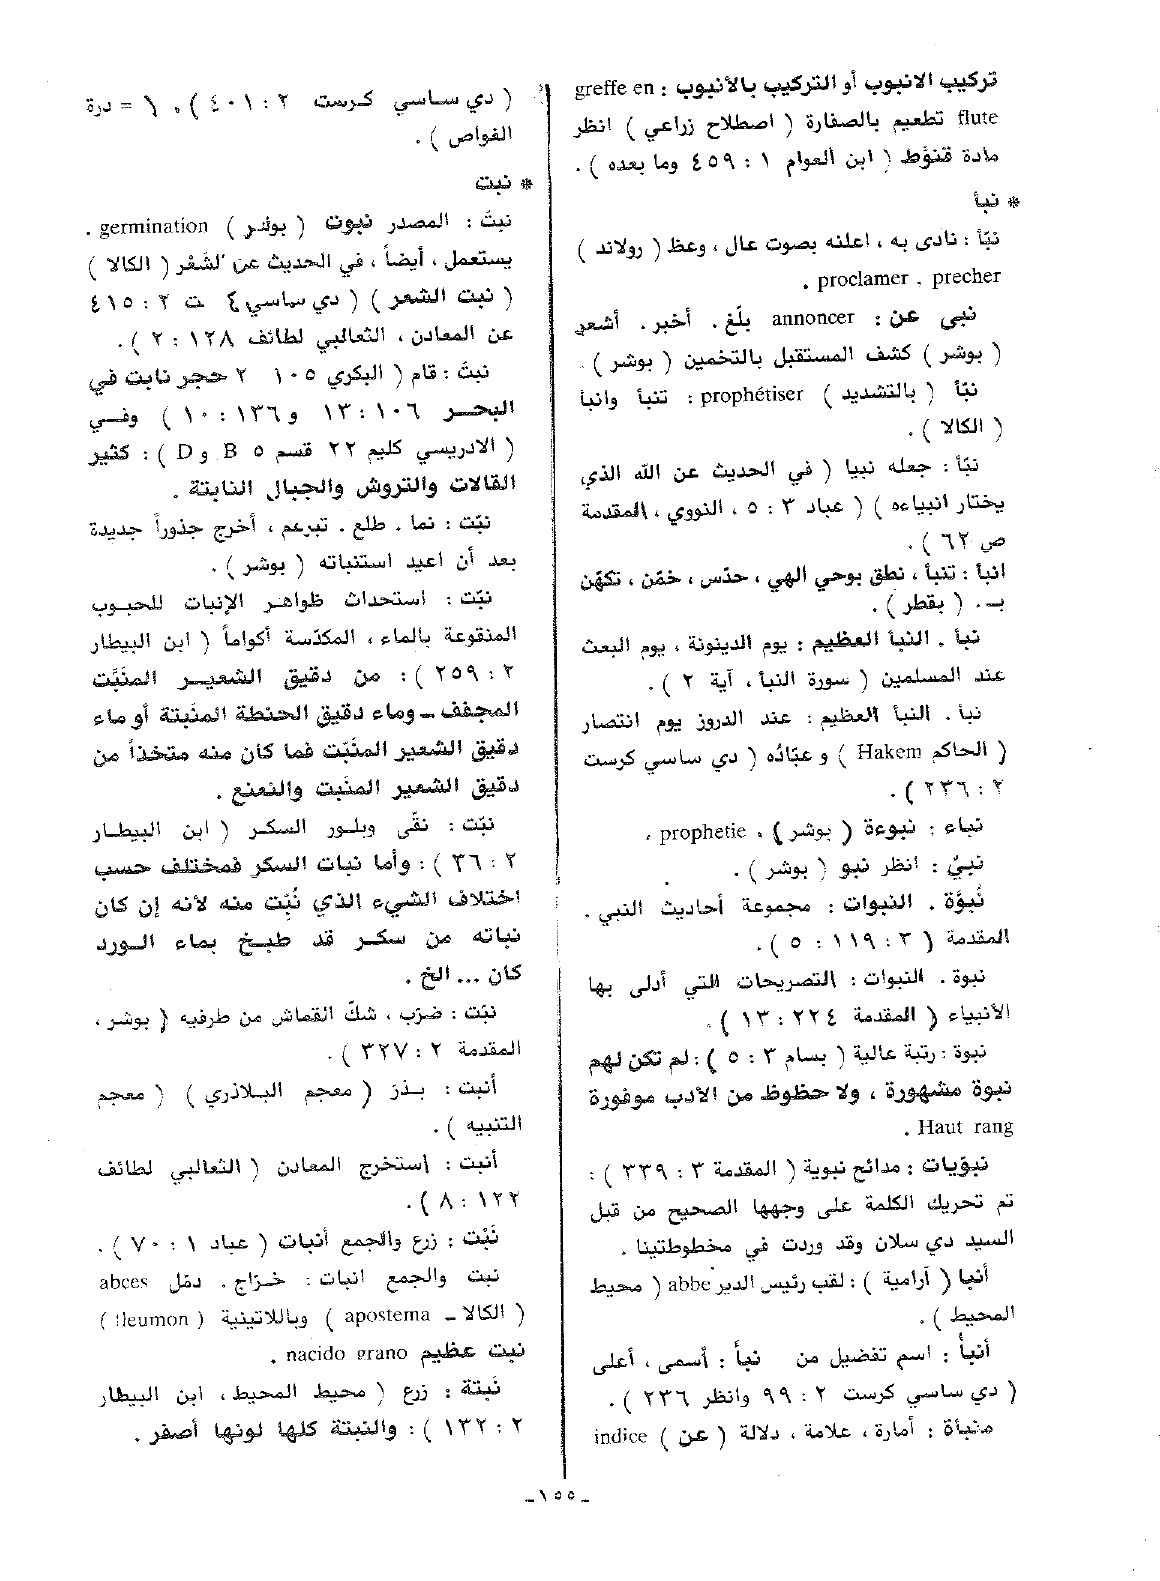 تركيب الانبوب أو التركيب بالأنبوب : greffe en
flute تطعيم بالصفارة ( اصطلاح زراعي ) انظر
مادة قنوَط ( ابن العوام ١ : ٤٥٩ وما بعده ) .
* نبأ
نبّأ : نادى به ، اعلنه بصوت عال ، وعظ ( رولاند )
proclamer . precher .
نبى عن : annoncer بلّغ . أخبر . أشعر
( بوشر ) كشف المستقبل بالتخمين ( بوشر ) .
نبّأ ( بالتشديد ) prophétiser : تنبأ وانبأ
( الكالا ) .
نبّأ : جعله نبيا ( في الحديث عن الله الذي
يختار انبياءه ) ( عباد ٣ : ٥ ، النووي ، المقدمة
ص ٦٢ ) .
انبأ : تنبأ ، نطق بوحي الهي ، حدّس ، خمّن ، تكهّن
بـ . ( بقطر ) .
نبأ . النبأ العظيم : يوم الدينونة ، يوم البعث
عند المسلمين ( سورة النبأ ، آية ٢ ) .
نبأ . النبأ العظيم : عند الدروز يوم انتصار
( الحاكم Hakem ) و عبّاده ( دي ساسي كرست
٢ : ٢٣٦ ) .
نباء : نبوءة ( بوشر ) ، prophetie .
نبيّ : انظر نبو ( بوشر ) .
نُبوّة . النبوات : مجموعة أحاديث النبي .
المقدمة ( ٣ : ١١٩ : ٥ ) .
نبوة . النبوات : التصريحات التي أدلى بها
الأنبياء ( المقدمة ٢٢٤ : ١٣ ) .
نبوة : رتبة عالية ( بسام ٣ : ٥ ) : لم تكن لهم
نبوة مشهورة ، ولا حظوظ من الأدب موفورة
Haut rang .
نبوّيات : مدائح نبوية ( المقدمة ٣ : ٣٣٩ ) :
تم تحريك الكلمة على وجهها الصحيح من قبل
السيد دي سلان وقد وردت في مخطوطتينا .
أنبا ( آرامية ) : لقب رئيس الدير abbe ( محيط
المحيط ) .
أنبأ : اسم تفضيل من نبأ : أسمى ، أعلى
( دي ساسي كرست ٢ : ٩٩ وانظر ٢٣٦ ) .
منبأة : أمارة ، علامة ، دلالة ( عن ) indice
( دي ساسي كرست ٢ : ٤٠١ ) . ( = درة
الغواص ) .
* نبت
نبتَ : المصدر نبوت ( بوشر ) germination .
يستعمل ، أيضاً ، في الحديث عن الشعْر ( الكالا )
( نبت الشعر ) ( دي ساسي ت ٢ : ٤١٥
عن المعادن ، الثعالبي لطائف ١٢٨ : ٢ ) .
نبتَ : قام ( البكري ١٠٥ ٢ حجر نابت في
البحر ١٠٦ : ١٣ و ١٣٦ : ١٠ ) وفي
( الادريسي كليم ٢٢ قسم ٥ B و D ) : كثير
القالات والتروش والجبال النابتة .
نبّت : نما . طلع . تبرعم ، أخرج جذوراً جديدة
بعد أن اعيد استنباته ( بوشر ) .
نبّت : استحداث ظواهر الإنبات للحبوب
المنقوعة بالماء ، المكدّسة أكواماً ( ابن البيطار
٢ : ٢٥٩ ) : من دقيق الشعير المنَبَّت
المجفف ــ وماء دقيق الحنطة المنَبتة أو ماء
دقيق الشعير المنَبّت فما كان منه متخذاً من
دقيق الشعير المنَبت والنعنع .
نبّت : نقّى وبلور السكر ( ابن البيطار
٢ : ٣٦ ) : وأما نبات السكر فمختلف حسب
اختلاف الشيء الذي نُبِّت منه لأنه إن كان
نباته من سكر قد طبخ بماء الورد
كان ... الخ .
نبّت : ضرَب ، شكّ القماش من طرفيه ( بوشر ،
المقدمة ٢ : ٣٢٧ ) .
أنبت : بذرَ ( معجم البلاذري ) ( معجم
التنبيه ) .
أنبت : إستخرج المعادن ( الثعالبي لطائف
١٢٢ : ٨ ) .
نَبْت : زرع والجمع أنبات ( عباد ١ : ٧٠ ) .
نبت والجمع انبات : خراج . دمّل abces
( الكالا ــ apostema ) وباللاتينية ( fleumon )
نبت عظيم nacido grano .
نَبتة : زرع ( محيط المحيط ، ابن البيطار
٢ : ١٣٢ ) : والنبتة كلها لونها أصفر .
ــ ١٥٥ ــ